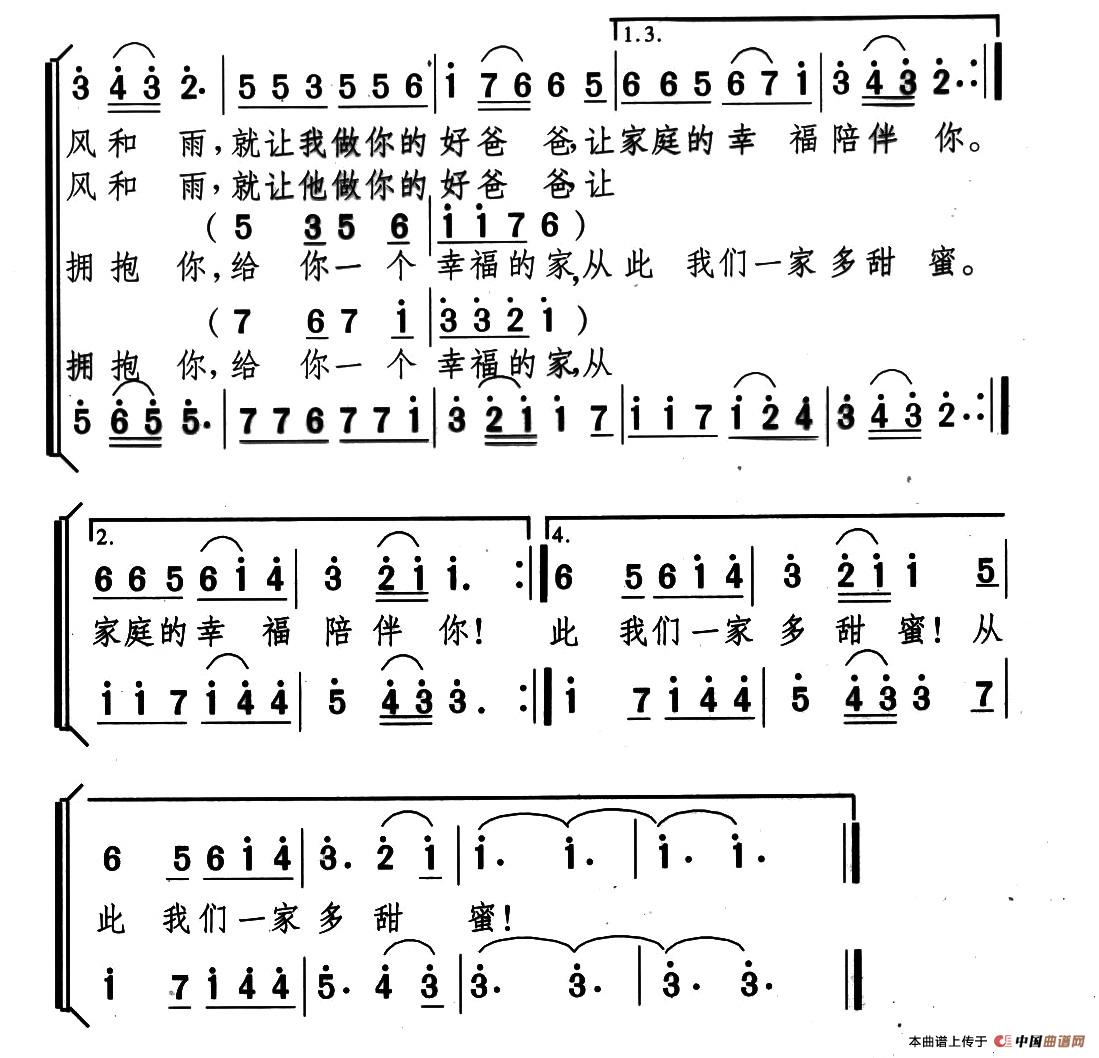 1.3.
3 4 3 2. | 5 5 3 5 5 6 | 1 7 6 6 5 | 6 6 5 6 7 1 | 3 4 3 2. :|
风和 雨,就让我做你的好爸 爸,让家庭的幸 福陪伴 你。
风和 雨,就让他做你的好爸 爸,让
( 5 3 5 6 | 1 1 7 6 )
拥抱 你,给 你一 个 幸福的家,从此 我们一家多甜 蜜。
( 7 6 7 1 | 3 3 2 1 )
拥抱 你,给 你一 个 幸福的家,从
5 6 5 5. | 7 7 6 7 7 1 | 3 2 1 1 7 | 1 1 7 1 2 4 | 3 4 3 2. :|
2. 4.
6 6 5 6 1 4 | 3 2 1 1. :| 6 5 6 1 4 | 3 2 1 1 5 |
家庭的幸 福 陪 伴 你! 此 我们一家 多 甜 蜜! 从
1 1 7 1 4 4 | 5 4 3 3. :| 1 7 1 4 4 | 5 4 3 3 7 |
6 5 6 1 4 | 3. 2 1 | 1. 1. | 1. 1. ||
此 我们一家 多 甜 蜜!
1 7 1 4 4 | 5. 4 3 | 3. 3. | 3. 3. ||
本曲谱上传于 中国曲谱网